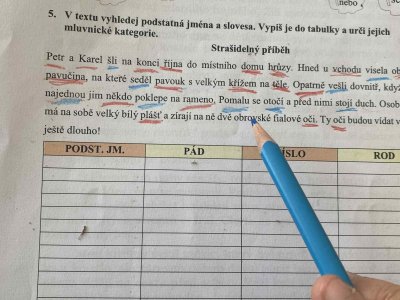 nebo ,
5. V textu vyhledej podstatná jména a slovesa. Vypiš je do tabulky a urči jejich
mluvnické kategorie.
Strašidelný příběh
Petr a Karel šli na konci října do místního domu hrůzy. Hned u vchodu visela ob
pavučina, na které seděl pavouk s velkým křížem na těle. Opatrně vešli dovnitř, když
najednou jim někdo poklepe na rameno. Pomalu se otočí a před nimi stojí duch. Oso
má na sobě velký bílý plášť a zírají na ně dvě obrovské fialové oči. Ty oči budou vídat v
ještě dlouho!
PODST. JM. PÁD ČÍSLO ROD